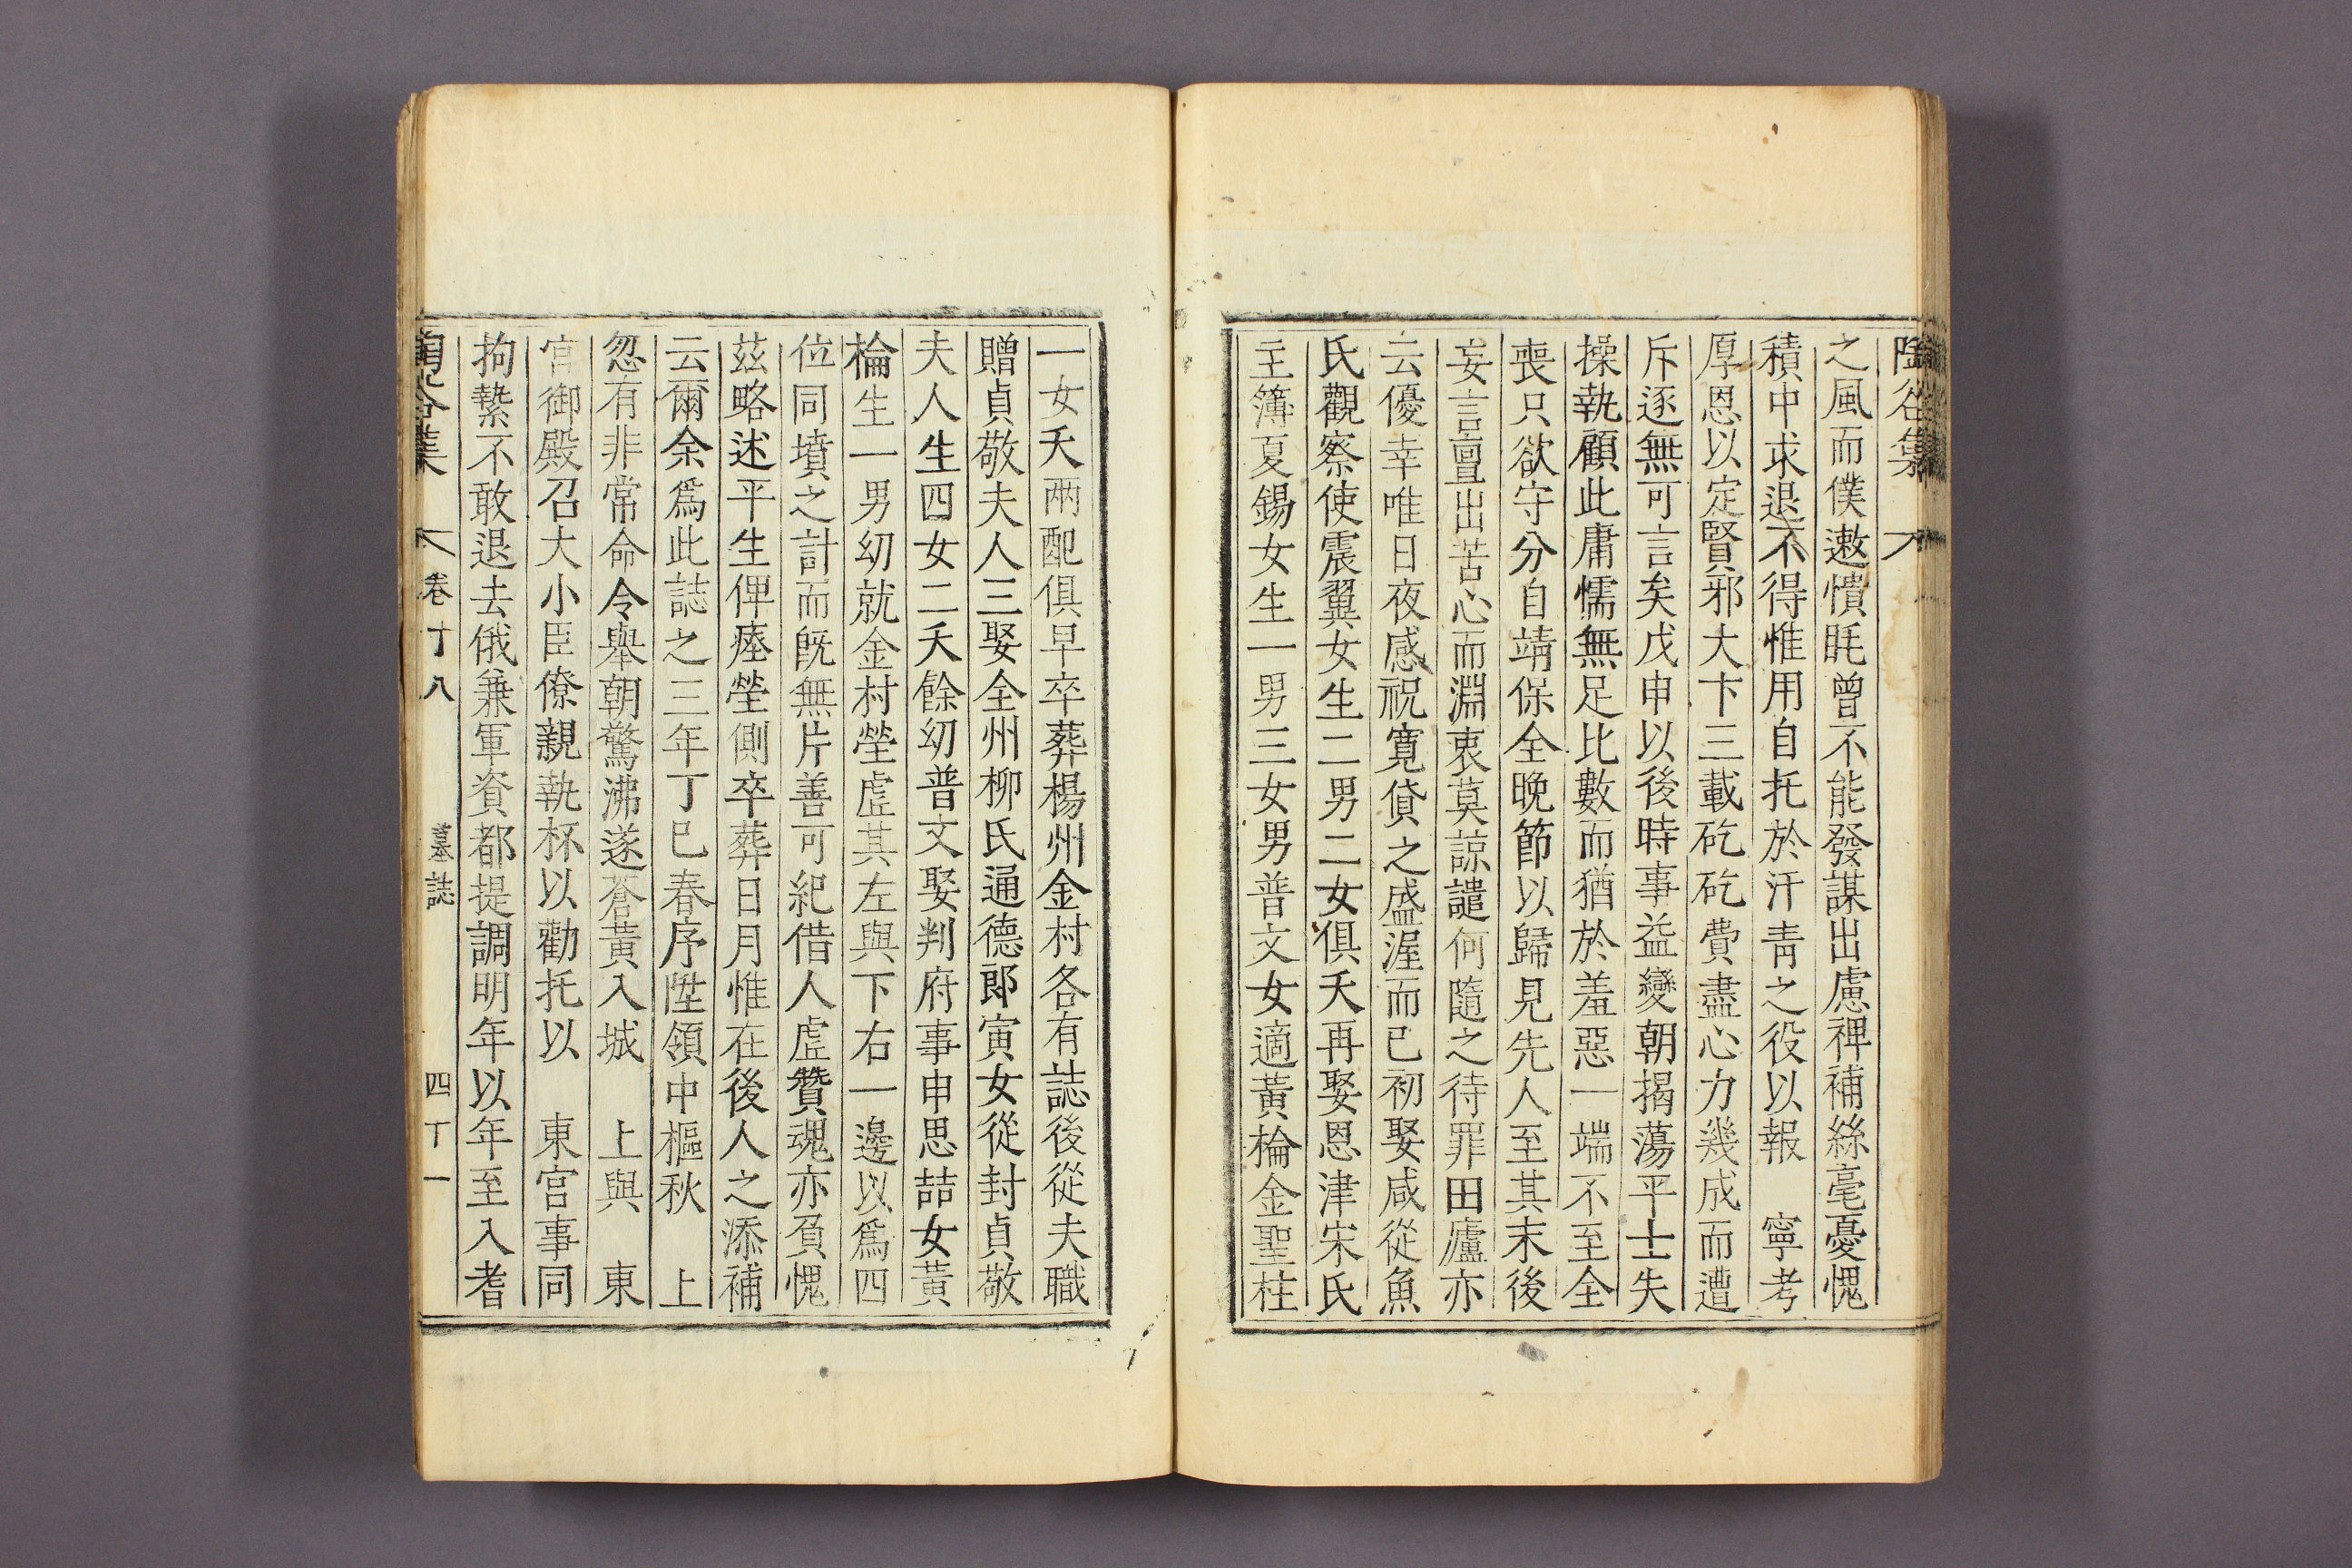 陶谷集
之風而僕遬憒眊曾不能發謀出慮裨補絲毫憂愧
積中求退不得惟用自托於汗靑之役以報 寧考
厚恩以定賢邪大卞三載矻矻費盡心力幾成而遭
斥逐無可言矣戊申以後時事益變朝揭蕩平士失
操執顧此庸懦無足比數而猶於羞惡一端不至全
喪只欲守分自靖保全晚節以歸見先人至其末後
妄言亶出苦心而淵衷莫諒譴何隨之待罪田廬亦
云優幸唯日夜感祝寬貸之盛渥而已初娶咸從魚
氏觀察使震翼女生二男二女俱夭再娶恩津宋氏
主簿夏錫女生一男三女男普文女適黃棆金聖柱
一女夭兩配俱早卒葬楊州金村各有誌後從夫職
贈貞敬夫人三娶全州柳氏通德郎寅女從封貞敬
夫人生四女二夭餘幼普文娶判府事申思喆女黃
棆生一男幼就金村塋虛其左與下右一邊以爲四
位同墳之計而旣無片善可紀借人虛贊魂亦負愧
茲略述平生俾瘞塋側卒葬日月惟在後人之添補
云爾余爲此誌之三年丁巳春序陞領中樞秋 上
忽有非常命令舉朝驚沸遂蒼黃入城 上與 東
宮御殿召大小臣僚親執杯以勸托以 東宮事同
拘縶不敢退去俄兼軍資都提調明年以年至入耆
陶谷集 卷丁八 墓誌 四丁一